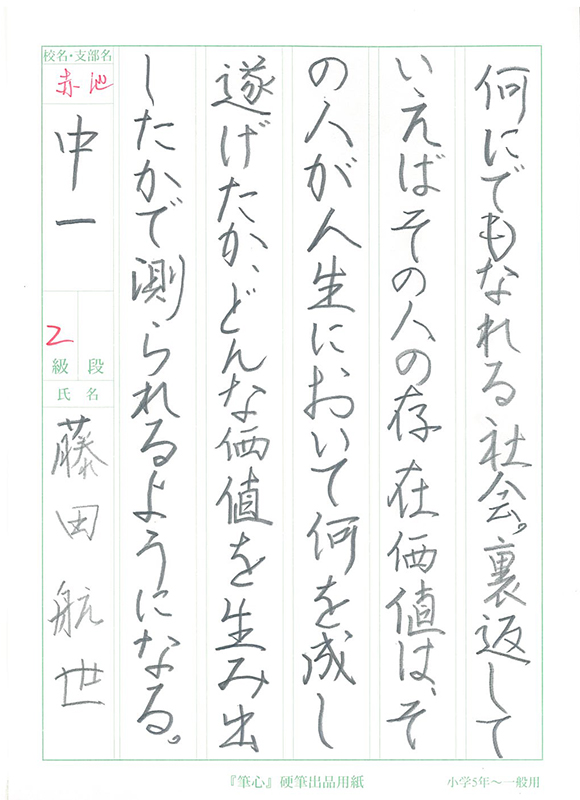 何にでもなれる社会。裏返して
いえばその人の存在価値は、そ
の人が人生において何を成し
遂げたか、どんな価値を生み出
したかで測られるようになる。
校名・支部名
赤池
中一
2
級 段
氏名
藤田航世
『筆心』硬筆出品用紙
小学5年〜一般用